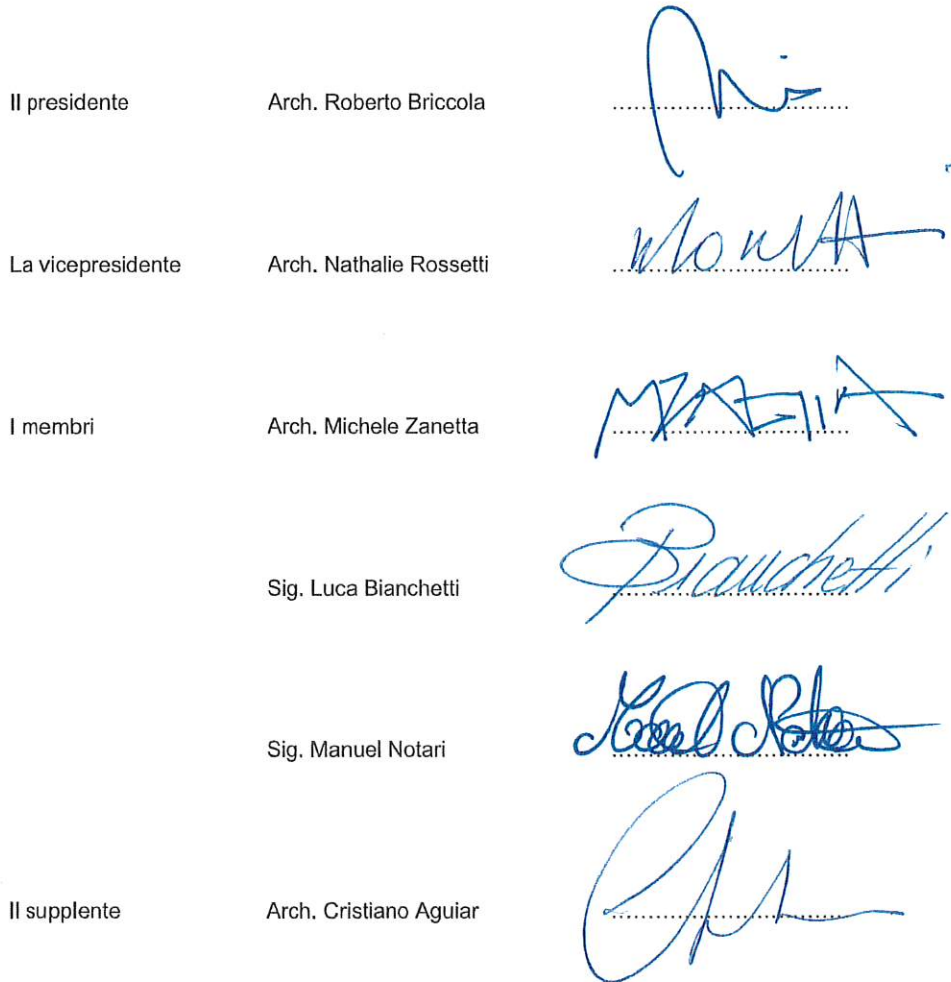 Il presidente Arch. Roberto Briccola
La vicepresidente Arch. Nathalie Rossetti
I membri Arch. Michele Zanetta
Sig. Luca Bianchetti Bianchetti
Sig. Manuel Notari
Il supplente Arch. Cristiano Aguiar